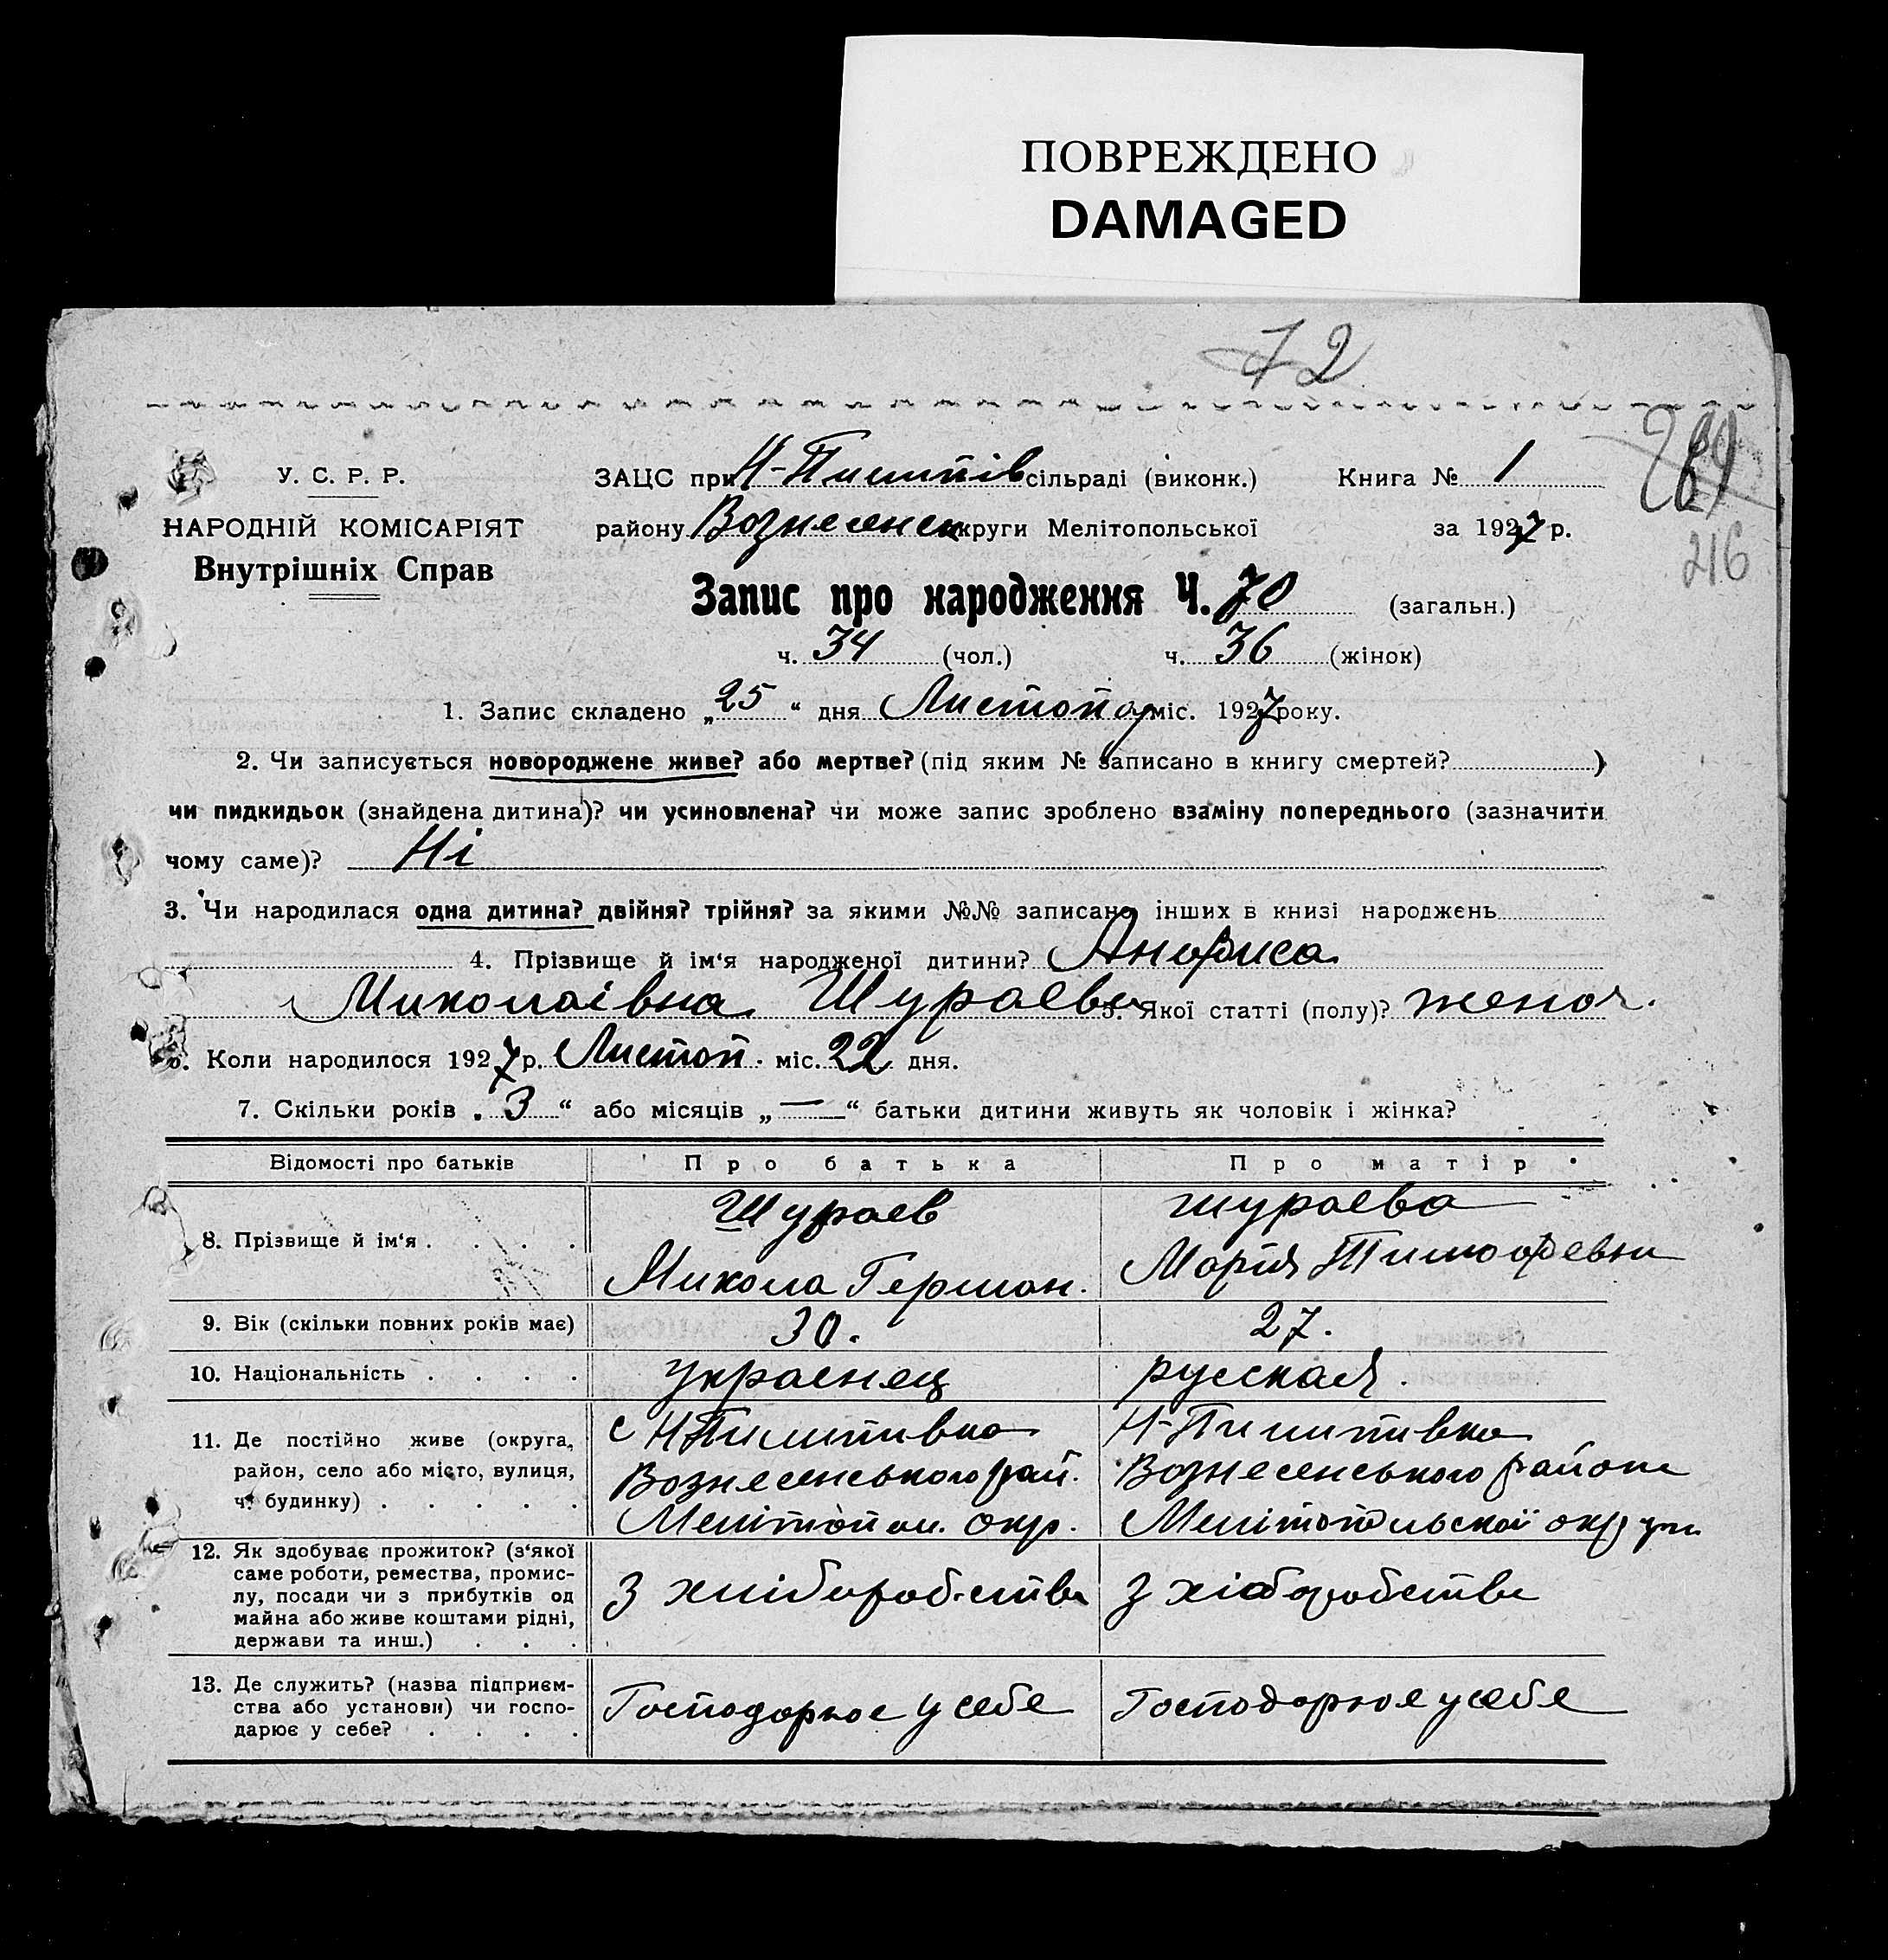 ПОВРЕЖДЕНО
DAMAGED
72
216
У. С. Р. Р.
НАРОДНІЙ КОМІСАРІЯТ
Внутрішніх Справ
ЗАЦС при Н-Пилипів сільраді (виконк.) Книга № 1
району Вознесенск округи Мелітопольської за 1927 р.
Запис про народження Ч. 70 (загальн.)
ч. 34 (чол.) ч. 36 (жінок)
1. Запис складено „25“ дня Листопад міс. 1927 року.
2. Чи записується новороджене живе? або мертве? (під яким № записано в книгу смертей? )
чи пидкидьок (знайдена дитина)? чи усиновлена? чи може запис зроблено взаміну попереднього (зазначити
чому саме)? Ні
3. Чи народилася одна дитина? двійня? трійня? за якими №№ записано інших в книзі народжень
4. Прізвище й ім‘я народженої дитини? Анфиса
Миколаівна Шураева 5. Якої статті (полу)? женоч.
6. Коли народилося 1927 р. Листоп. міс. 22 дня.
7. Скільки років „3“ або місяців „—“ батьки дитини живуть як чоловік і жінка?
Відомості про батьків Про батька Про матір
8. Прізвище й ім‘я . . . . .
Шураев
Микола Герман.
шураева
Марія Тимофевна
9. Вік (скільки повних років має) 30. 27.
10. Національність . . . . украенец русская.
11. Де постійно живе (округа,
район, село або місто, вулиця,
ч. будинку) . . . . .
с Н Пилипивка
Вознесенського рай.
Мелітопол. окр.
Н-Пилипивка
Вознесенського района
Мелітопольскої округи
12. Як здобуває прожиток? (з‘якої
саме роботи, ремества, промис-
лу, посади чи з прибутків од
майна або живе коштами рідні,
держави та инш.) . . .
З хліборобства
З хіаборобства
13. Де служить? (назва підприєм-
ства або установи) чи госпо-
дарює у себе? . . . .
Господорює у себе
Господорюе у себе